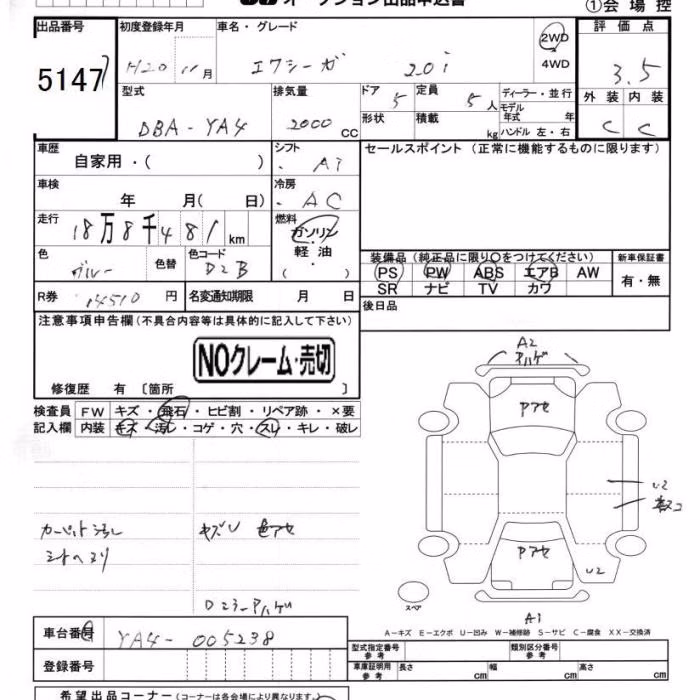 オークション出品申込書
①会場控
出品番号 初度登録年月 車名・グレード 評価点
5147 H20 11月 エクシーガ 2.0i 2WD 4WD 3.5
型式 排気量 ドア 定員 ディーラー・並行 外装 内装
DBA-YA4 2000 CC 5 5人 モデル年式 年 C C
形状 積載 kg ハンドル 左・右
車歴 シフト セールスポイント (正常に機能するものに限ります)
自家用・( ) Ai
車検 冷房
年 月( 日) AC
走行 燃料
18万8千481km ガソリン・軽油 ( )
色 色替 色コード 装備品 (純正品に限り○をつけてください) 新車保証書
ブルー D2B PS PW ABS エアB AW 有・無
SR ナビ TV カワ
R券 名変通知期限 後日品
14510円 月 日
注意事項申告欄 (不具合内容等は具体的に記入して下さい)
NOクレーム・売切
修復歴 有 〔箇所 〕
検査員 FW キズ・飛石・ヒビ割・リペア跡・×要
記入欄 内装 キズ・汚レ・コゲ・穴・スレ・キレ・破レ
A2
Pアセ
U2
カーペット汚レ キズU 色アセ
Pアセ
U2
スペア
A1
A-キズ E-エクボ U-凹み W-補修跡 S-サビ C-腐食 XX-交換済
車台番号 YA4-005238
型式指定番号 参考 類別区分番号 参考
登録番号
車庫証明用 参考 長さ cm 幅 cm 高さ cm
希望出品コーナー (コーナーは各会場により異なります。